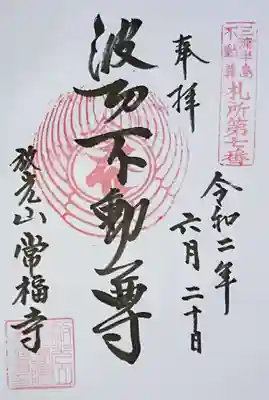 三浦半島
不動尊
札所第七番
奉拝
令和二年
六月二十日
波切不動尊
放光山常福寺